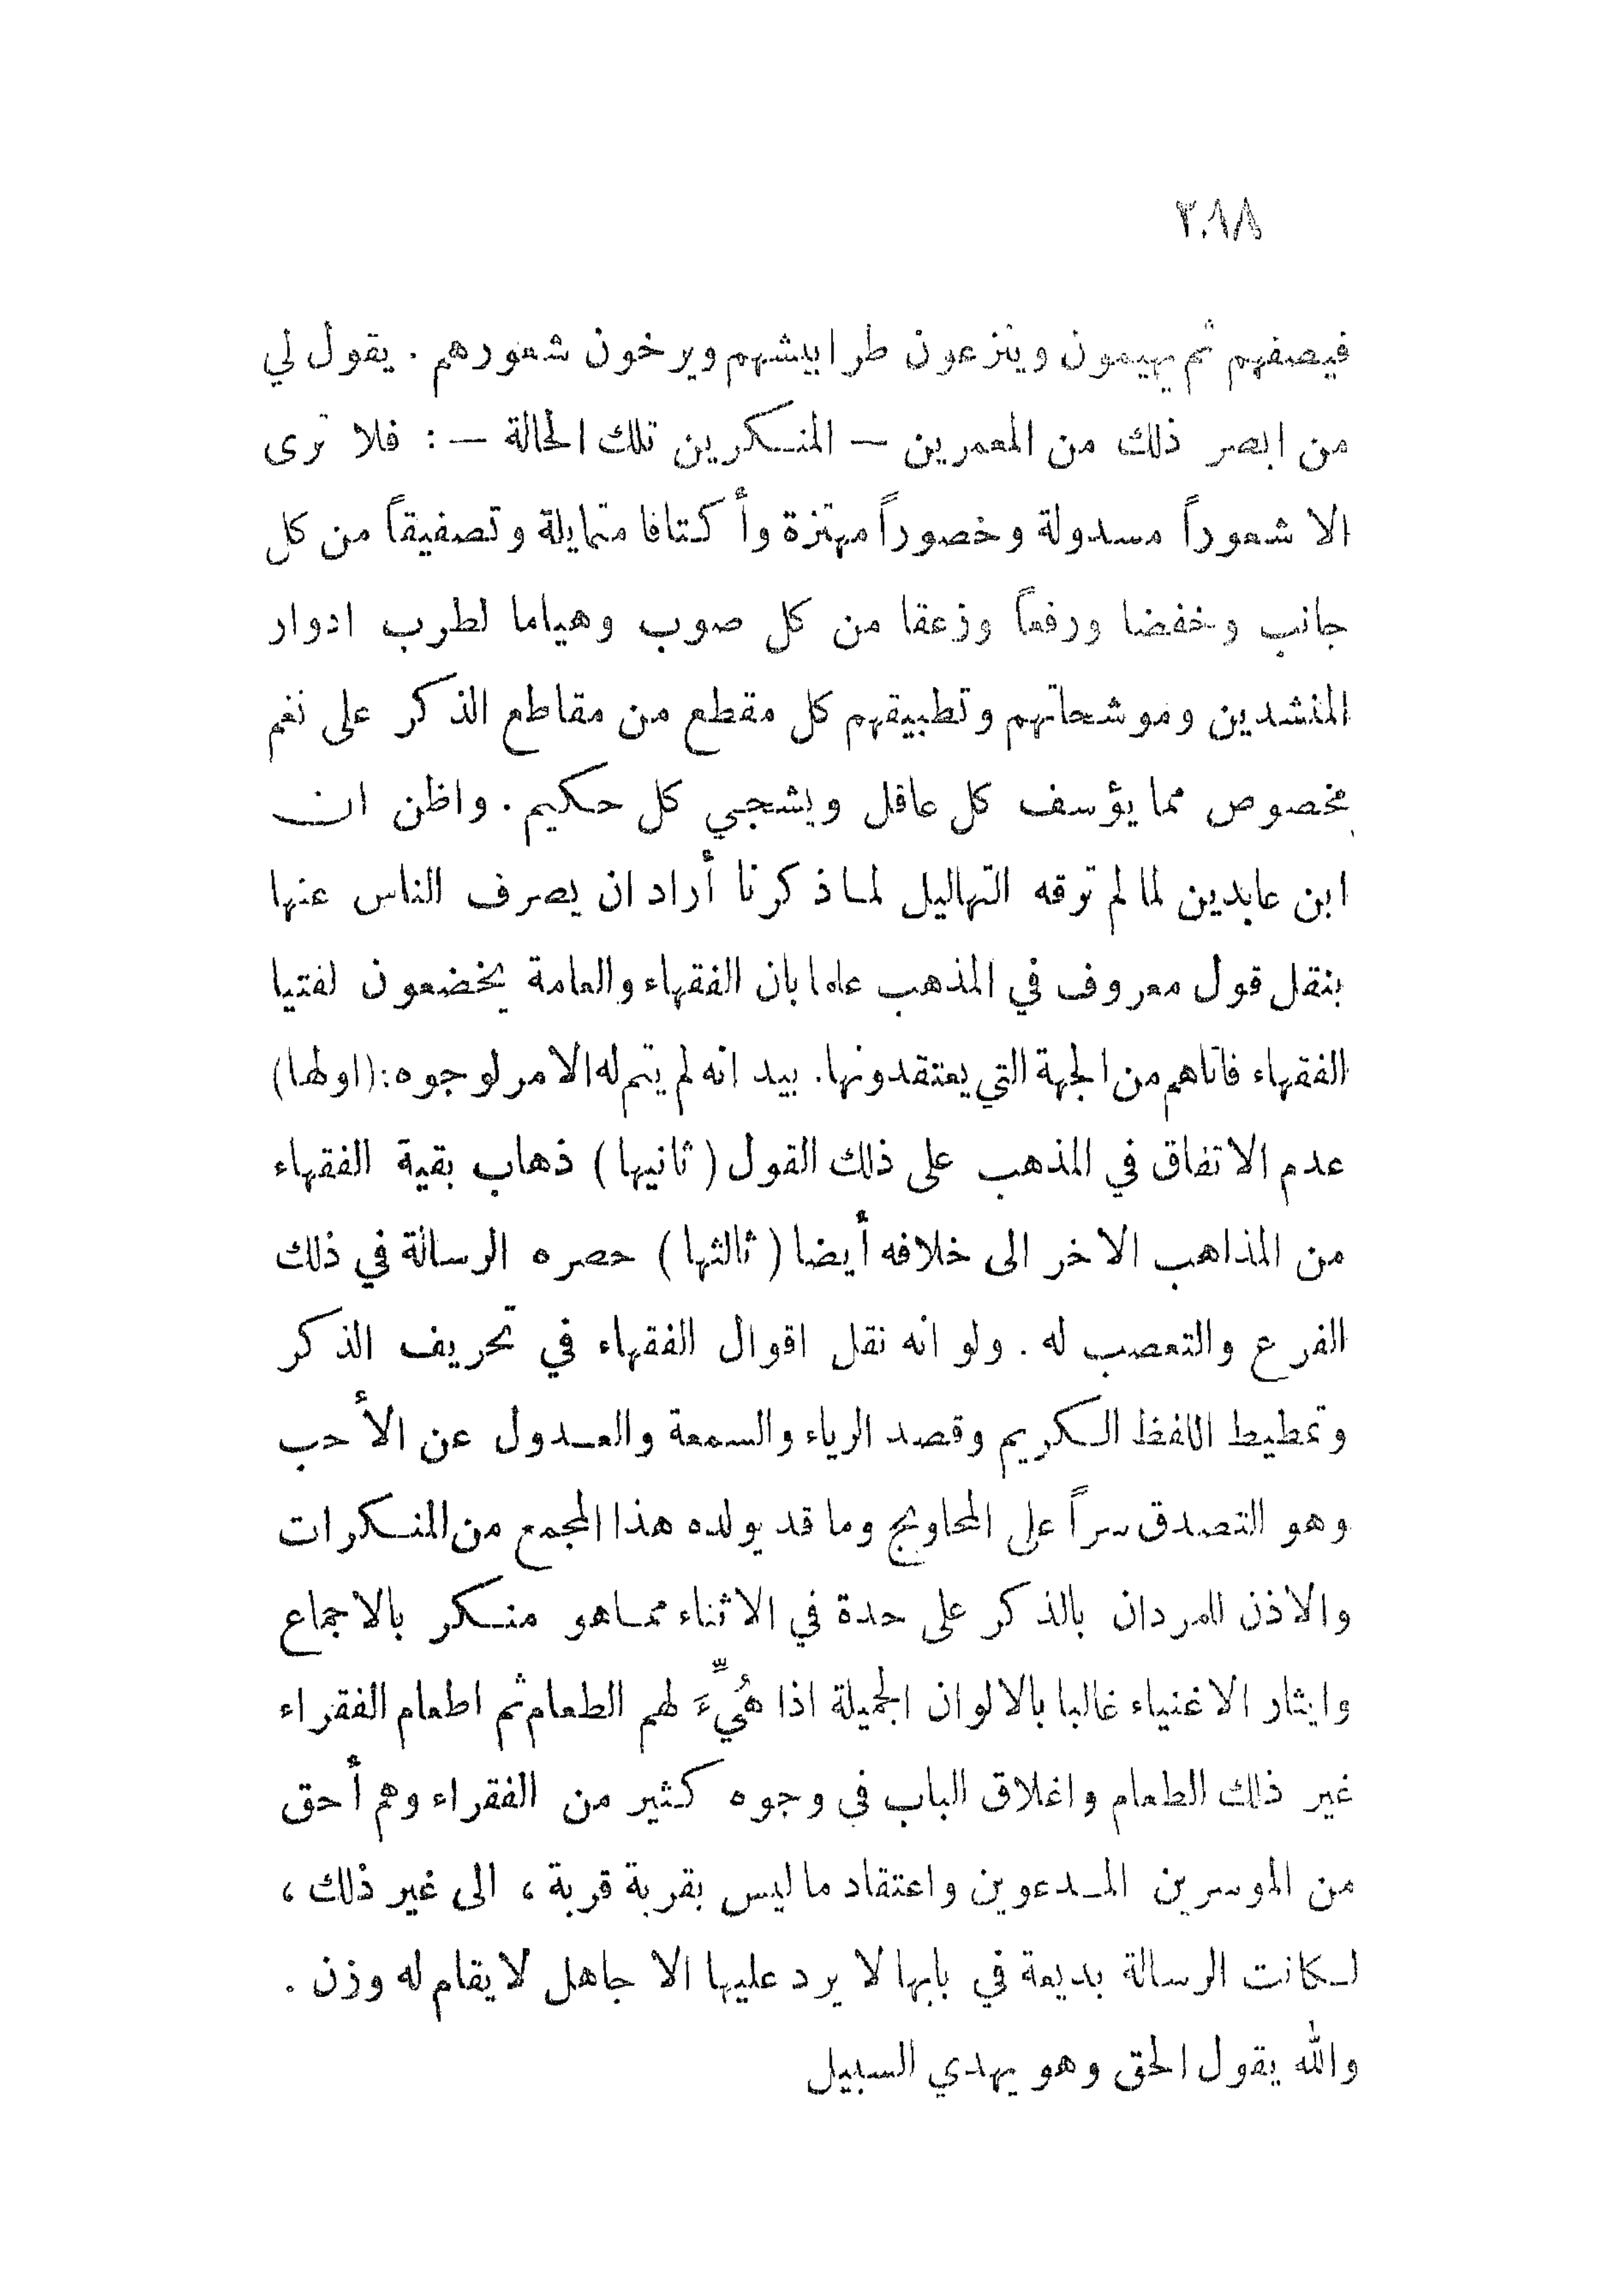 ٢٠١٨
فيصفهم ثم يهيمون وينزعون طرابيشهم ويرخون شعورهم . يقول لي
من ابصر ذلك من المعمرين — المنكرين تلك الحالة — : فلا ترى
الا شعوراً مسدولة وخصوراً مهتزة وأكتافا متمايلة وتصفيقاً من كل
جانب وخفضا ورفعاً وزعقا من كل صوب وهياما لطرب ادوار
المنشدين وموشحاتهم وتطبيقهم كل مقطع من مقاطع الذكر على نغم
مخصوص مما يؤسف كل عاقل ويشجي كل حكيم . واظن ان
ابن عابدين لما لم ترقه التهاليل لما ذكرنا أراد ان يصرف الناس عنها
بنقل قول معروف في المذهب علما بان الفقهاء والعامة يخضعون لفتيا
الفقهاء فاتاهم من الجهة التي يعتقدونها . بيد انه لم يتم له الامر لوجوه : (اولها)
عدم الاتفاق في المذهب على ذلك القول ( ثانيها ) ذهاب بقية الفقهاء
من المذاهب الاخر الى خلافه أيضا ( ثالثها ) حصره الرسالة في ذلك
الفرع والتعصب له . ولو انه نقل اقوال الفقهاء في تحريف الذكر
وتمطيط اللفظ الكريم وقصد الرياء والسمعة والعدول عن الأحب
وهو التصدق سراً على المحاويج وما قد يولده هذا المجمع من المنكرات
والاذن للمردان بالذكر على حدة في الاثناء مما هو منكر بالاجماع
وايثار الاغنياء غالبا بالالوان الجميلة اذا هُيِّءَ لهم الطعام ثم اطعام الفقراء
غير ذلك الطعام واغلاق الباب في وجوه كثير من الفقراء وهم أحق
من الموسرين المدعوين واعتقاد ما ليس بقربة قربة ، الى غير ذلك ،
لكانت الرسالة بديعة في بابها لا يرد عليها الا جاهل لا يقام له وزن .
والله يقول الحق وهو يهدي السبيل